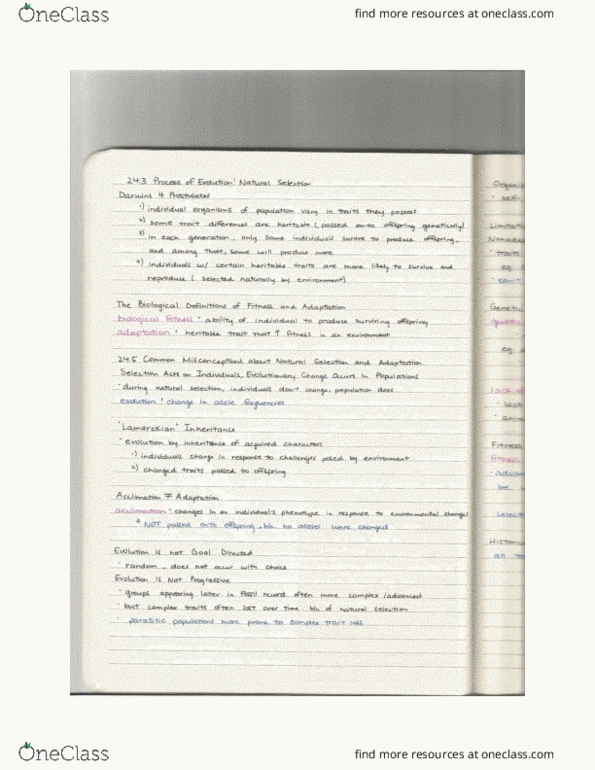 OneClass
find more resources at oneclass.com
24.3 Process of Evolution: Natural Selection
Darwin's 4 Prostulates
1) individual organisms of population vary in traits they posses
2) some trait differences are heritable (passed onto offspring genetically)
3) in each generation, only some individuals survive to produce offspring,
and among those, some will produce more
4) individuals w/ certain heritable traits are more likely to survive and
reproduce (selected naturally by environment)
The Biological Definitions of Fitness and Adaptation
biological fitness: ability of individual to produce surviving offspring
adaptation: heritable trait that ↑ fitness in an environment
24.5 Common Misconceptions about Natural Selection and Adaptation
Selection Acts on Individuals, Evolutionary Change Occurs in Populations
· during natural selection, individuals don't change, population does
evolution: change in allele frequencies
"Lamarckian" Inheritance
· evolution by inheritance of acquired characters
1) individuals change in response to challenges posed by environment
2) changed traits passed to offspring
Acclimation ≠ Adaptation
acclimation: changes in an individual's phenotype in response to environmental change
* NOT passed onto offspring, b/c no alleles were changed
Evolution is not Goal Directed
· random, does not occur with choice
Evolution is Not Progressive
· groups appearing later in fossil record often more complex/advanced
· but complex traits often lost over time b/c of natural selection
· parasitic populations more prone to complex trait loss
Genetic
lack of
Fitness
fitness
be
all
OneClass
find more resources at oneclass.com